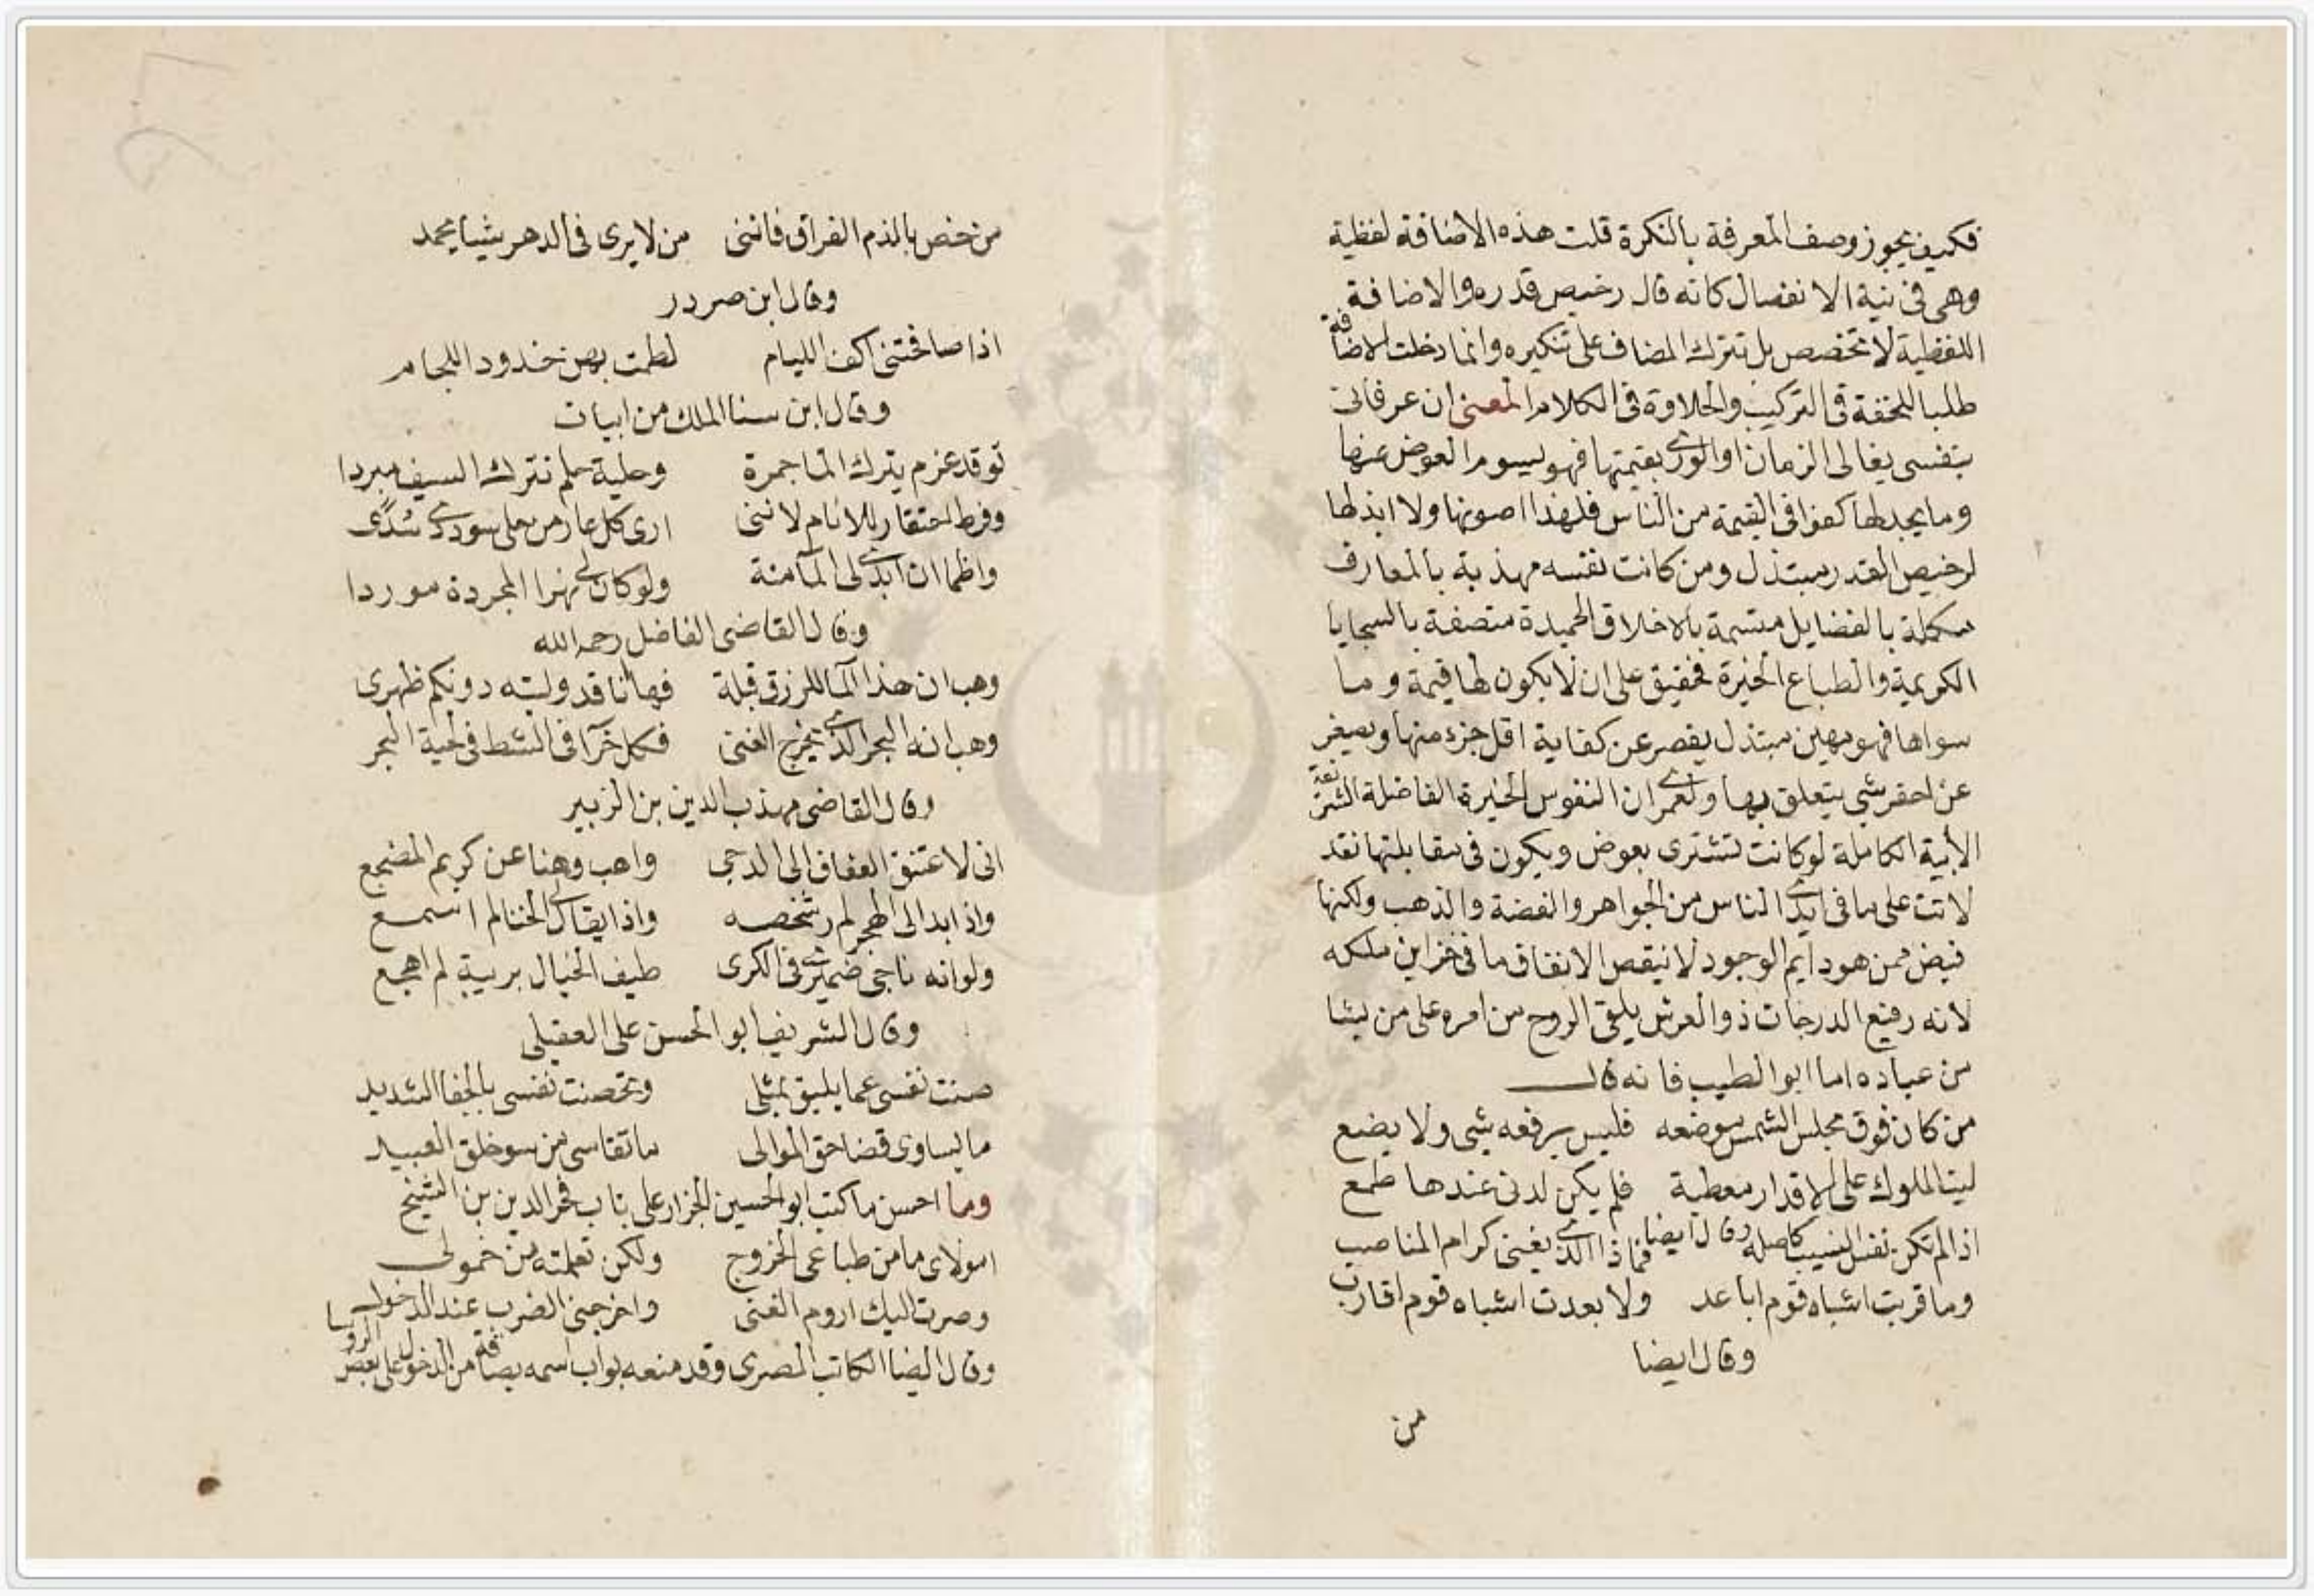 فكيف يجوز وصف المعرفة بالنكرة قلت هذه الاضافة لفظية
وهى فى نية الانفصال كانه قال رخيص قدره والاضافة
اللفظية لا تخصص بل تترك المضاف على تنكيره وانما دخلت الاضافة
طلبا للخفة فى التركيب والحلاوة فى الكلام المعنى ان عرفانى
بنفسى يغالى الزمان او الورى بقيمتها فهو يسوم العوض عنها
وما يجد لها كفوا فى القيمة من الناس فلهذا اصونها ولا ابذلها
لرخيص القدر مبتذل ومن كانت نفسه مهذبة بالمعارف
مكملة بالفضايل متسمة بالاخلاق الحميدة متصفة بالسجايا
الكريمة والطباع الخيرة فحقيق على ان لا يكون لها قيمة وما
سواها فهو مهين مبتذل يقصر عن كفاية اقل جزء منها ويصغر
عن احقر شى يتعلق بها ولعمرى ان النفوس الخيرة الفاضلة الشريفة
الأبية الكاملة لو كانت تشترى بعوض ويكون فى مقابلتها نقد
لاتت على ما فى ايدى الناس من الجواهر والفضة والذهب ولكنها
فيض ممن هو دايم الوجود لا ينقص الانفاق ما فى خزاين ملكه
لانه رفيع الدرجات ذو العرش يلقى الروح من امره على من يشا
من عباده اما ابو الطيب فانه قال
من كان فوق محل الشمس موضعه فليس يرفعه شى ولا يضع
ليت الملوك على الاقدار معطية فلم يكن لدنى عندها طمع
وقال ايضا
اذا لم تكن نفس النسيب كاصله فماذا الذى يغنى كرام المناصب
وما قربت اشباه قوم اباعد ولا بعدت اشباه قوم اقارب
وقال ايضا
من
من خص بالذم الفراق فاننى من لا يرى فى الدهر شيا يحمد
وقال ابن صردر
اذا صافحتنى اكف الليام لطمت بهن خدود اللجام
وقال ابن سنا الملك من ابيات
توقد عزم يترك الما جمرة وحلية حلم تترك السيف مبردا
وفرط احتقار للانام لاننى ارى كل عار من حلى سوددى سدى
واظما ان ابدى لى الما منة ولو كان لى نهرا المجرة موردا
وقال القاضى الفاضل رحمه الله
وهب ان هذا الما للرزق قبلة فها انا قد وليته دونكم ظهرى
وهب انه البحر الذى يخرج الغنى فكل خرا فى الشط فى لحية البحر
وقال القاضى مهذب الدين بن الزبير
انى لاعتنق العفاف الى الدجى واهب وهنا عن كريم المضجع
واذا بدا لى الهجر لم ر شخصه واذا يقال لى الخنا لم اسمع
ولو انه ناجى ضميرى فى الكرى طيف الخيال بريبة لم اهجع
وقال الشريف ابو الحسن على العقيلى
صنت نفسى عما يليق بمثلى وتحصنت نفسى بالجفا الشديد
ما يساوى قضا حق الموالى ما تقاسى من سو خلق العبيد
وما احسن ما كتب ابو الحسين الجزار على باب فخر الدين بن الشيخ
امولاى ما من طباعى الخروج ولكن تعلمته من خمولى
وصرت اليك اروم الغنى واخرجنى الضرب عند الدخول
وقال ايضا الكاتب المصرى وقد منعه بواب اسمه بصاقة من الدخول على بعض الروسا